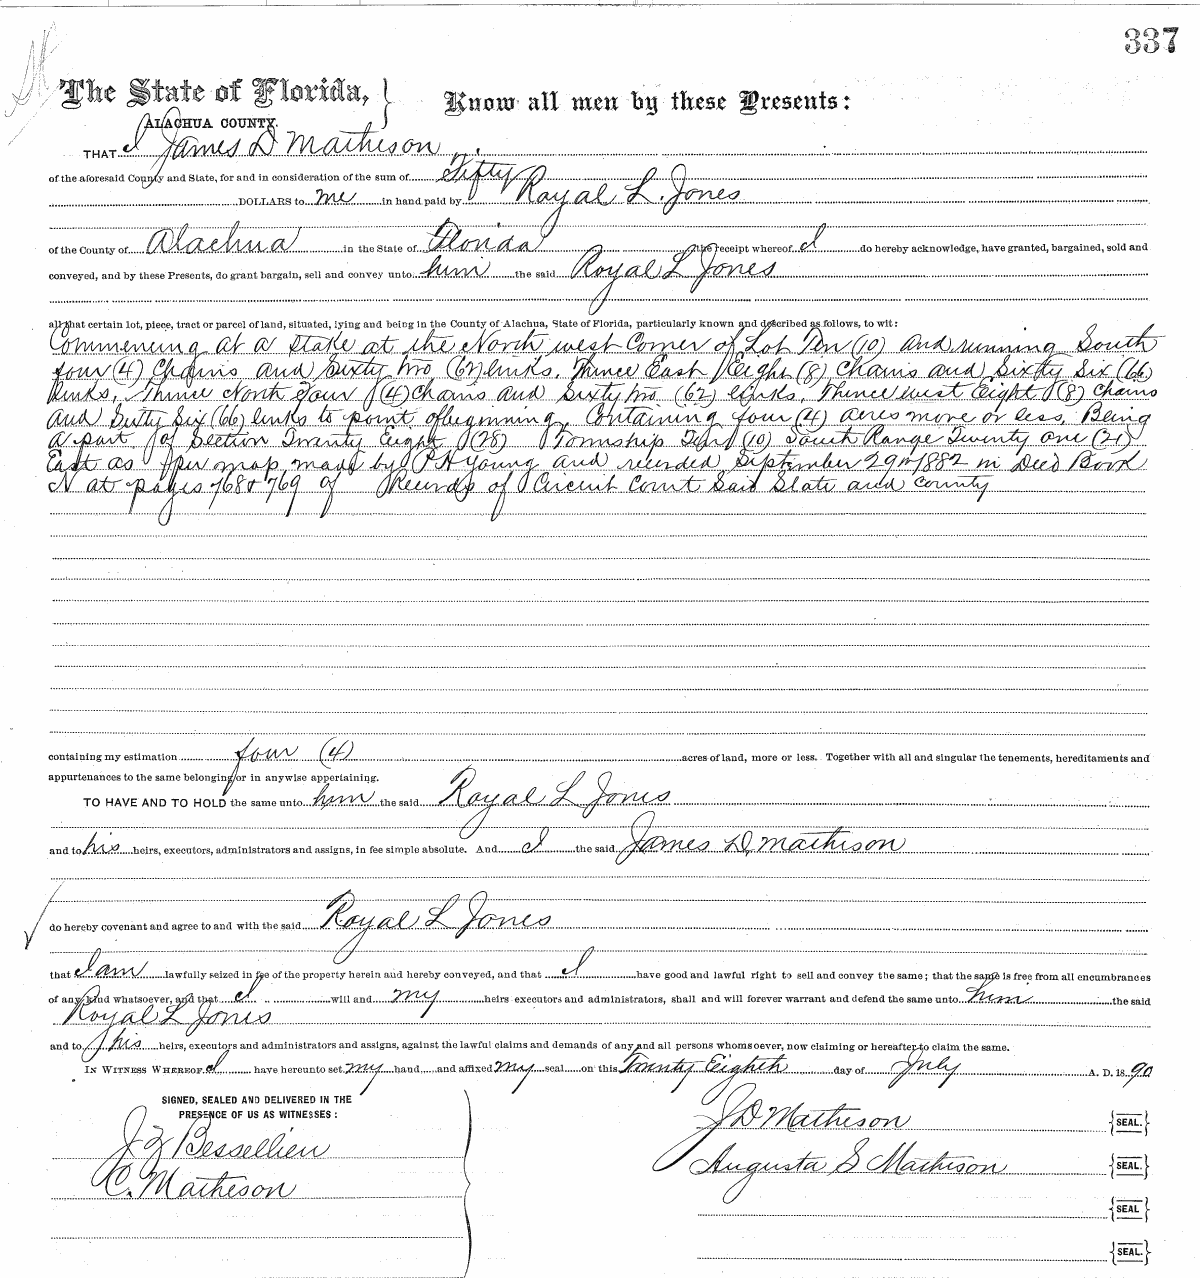 337
The State of Florida,
Know all men by these Presents:
ALACHUA COUNTY.
THAT I James D Matheson
of the aforesaid County and State, for and in consideration of the sum of Fifty
DOLLARS to me in hand paid by Royal L. Jones
of the County of Alachua in the State of Florida the receipt whereof I do hereby acknowledge, have granted, bargained, sold and
conveyed, and by these Presents, do grant bargain, sell and convey unto him the said Royal L Jones
all that certain lot, piece, tract or parcel of land, situated, lying and being in the County of Alachua, State of Florida, particularly known and described as follows, to wit:
Commencing at a stake at the North west Corner of Lot Ten (10) and running South
four (4) Chains and Sixty two (62) links. Thence East Eight (8) Chains and Sixty Six (66)
links, Thence North Four (4) Chains and Sixty two (62) links, Thence west Eight (8) Chains
and Sixty Six (66) links to point of beginning, Containing four (4) acres more or less, Being
a part of Section Twenty Eight (28) Township Ten (10) South Range Twenty one (21)
East as per map made by P H Young and recorded September 29th 1882 in Deed Book
N at pages 768 & 769 of Records of Circuit Court Said State and County
containing my estimation four (4) acres of land, more or less. Together with all and singular the tenements, hereditaments and
appurtenances to the same belonging or in anywise appertaining.
TO HAVE AND TO HOLD the same unto him the said Royal L Jones
and to his heirs, executors, administrators and assigns, in fee simple absolute. And I the said James D, Matheson
do hereby covenant and agree to and with the said Royal L Jones
that I am lawfully seized in fee of the property herein and hereby conveyed, and that I have good and lawful right to sell and convey the same; that the same is free from all encumbrances
of any kind whatsoever, and that I will and my heirs executors and administrators, shall and will forever warrant and defend the same unto him the said
Royal L Jones
and to his heirs, executors and administrators and assigns, against the lawful claims and demands of any and all persons whomsoever, now claiming or hereafter to claim the same.
IN WITNESS WHEREOF I have hereunto set my hand and affixed my seal on this Twenty Eighth day of July A. D. 18 90
SIGNED, SEALED AND DELIVERED IN THE
PRESENCE OF US AS WITNESSES:
J D Matheson SEAL.
Bessellieu
Augusta S Matheson SEAL.
C. Matheson
SEAL
SEAL.